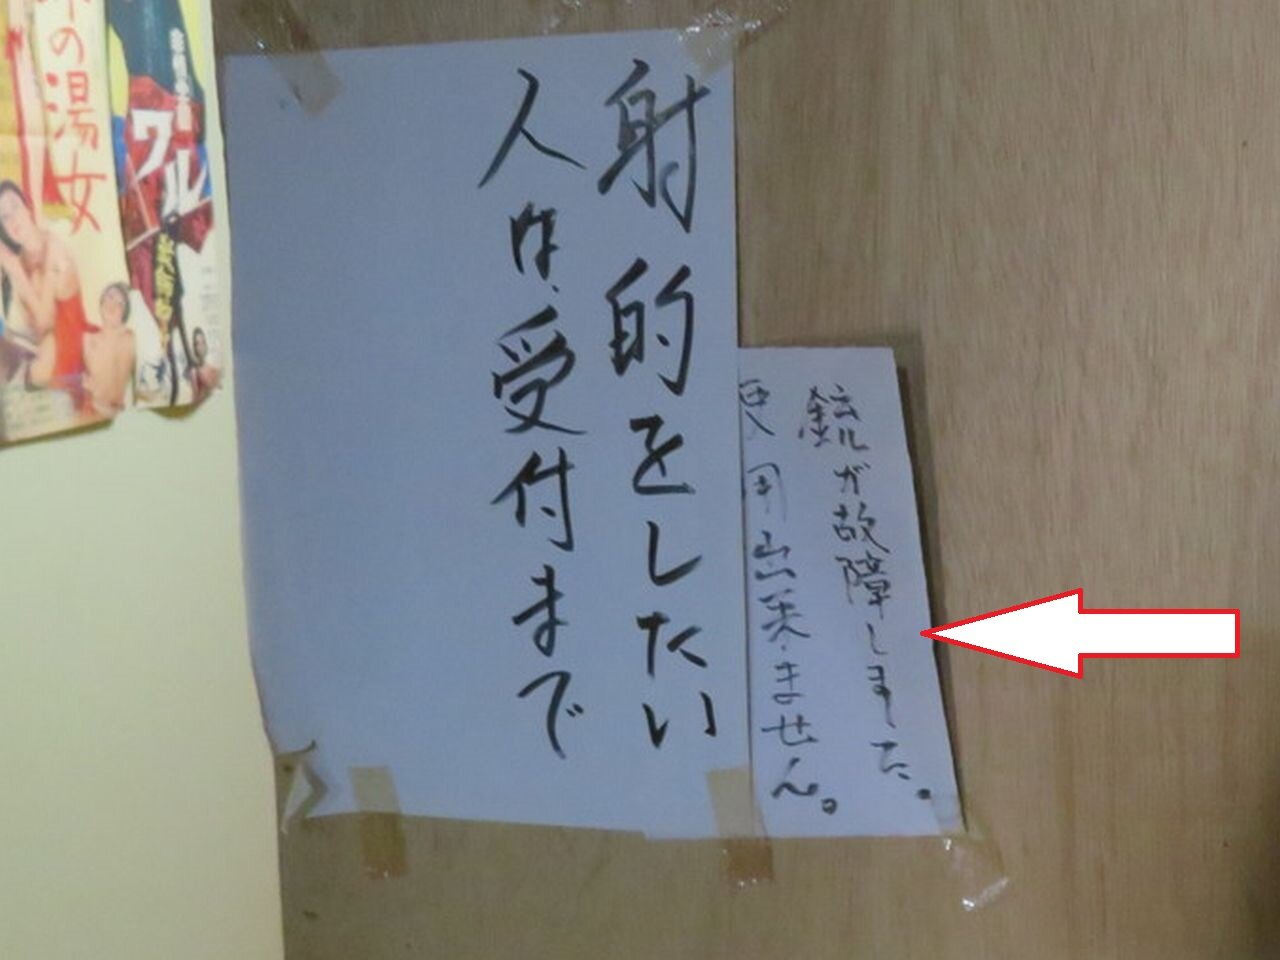 銃が故障しました。
使用出来ません。
射的をしたい
人は、受付まで
の湯女
ワル